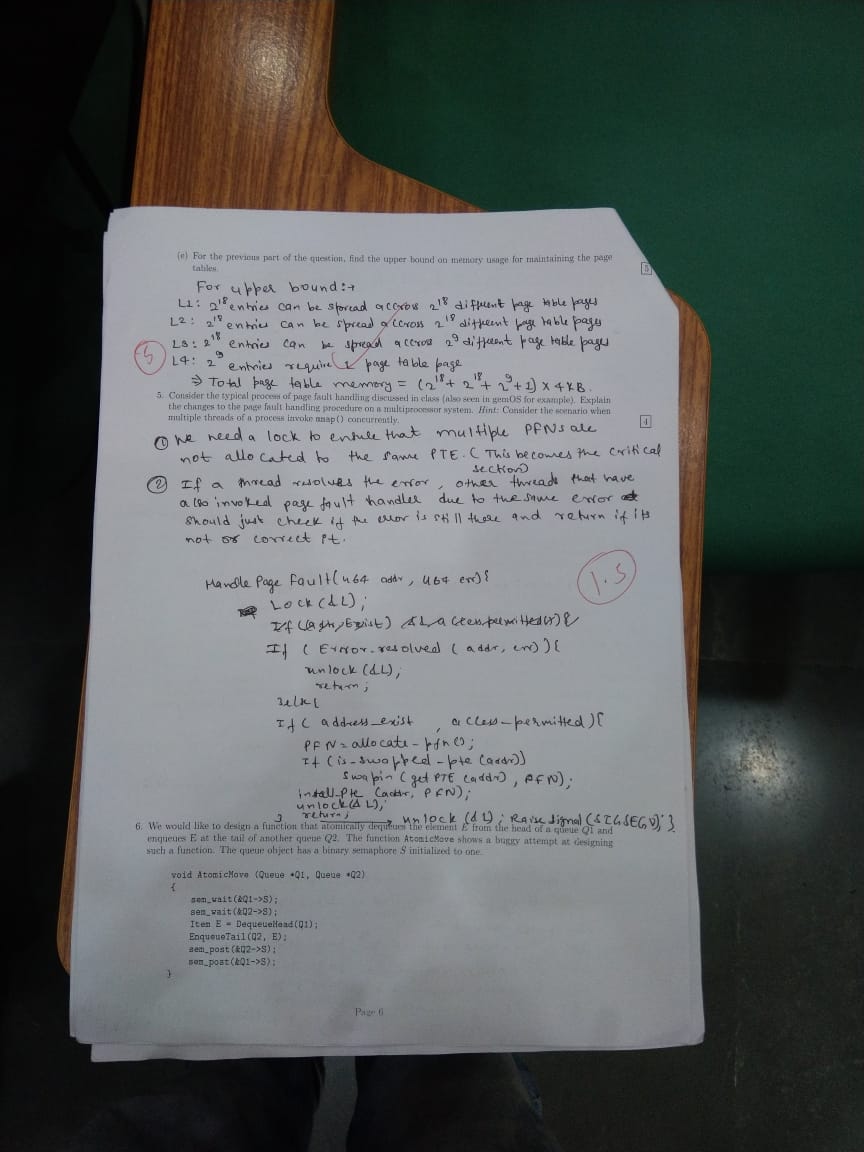 (e) For the previous part of the question, find the upper bound on memory usage for maintaining the page
tables.
5
For upper bound:→
L1: 2^18 entries can be spread accross 2^18 different page table pages
L2: 2^18 entries can be spread accross 2^18 different page table pages
L3: 2^18 entries can be spread accross 2^9 different page table pages
5
L4: 2^9 entries require 1 page table page
⇒ Total page table memory = (2^18 + 2^18 + 2^9 + 1) × 4KB.
5. Consider the typical process of page fault handling discussed in class (also seen in gemOS for example). Explain
the changes to the page fault handling procedure on a multiprocessor system. Hint: Consider the scenario when
multiple threads of a process invoke mmap() concurrently.
4
① We need a lock to ensure that multiple PFNs are
not allocated to the same PTE. (This becomes the critical
section)
② If a thread resolves the error, other threads that have
also invoked page fault handler due to the same error
should just check if the error is still there and return if its
not or correct it.
1.5
Handle Page Fault(u64 addr, u64 err){
Lock(&L);
If (Error-resolved (addr, err)){
unlock(&L);
return;
}else{
If( address_exist , access-permitted){
PFN = allocate-pfn();
If (is-swapped-pte(addr))
swapin(get PTE (addr), PFN);
install-pte (addr, PFN);
unlock(&L);
return;
} unlock(&L); Raise signal(SIGSEGV);}
6. We would like to design a function that atomically dequeues the element E from the head of a queue Q1 and
enqueues E at the tail of another queue Q2. The function AtomicMove shows a buggy attempt at designing
such a function. The queue object has a binary semaphore S initialized to one.
void AtomicMove (Queue *Q1, Queue *Q2)
{
sem_wait(&Q1->S);
sem_wait(&Q2->S);
Item E = DequeueHead(Q1);
EnqueueTail(Q2, E);
sem_post(&Q2->S);
sem_post(&Q1->S);
}
Page 6